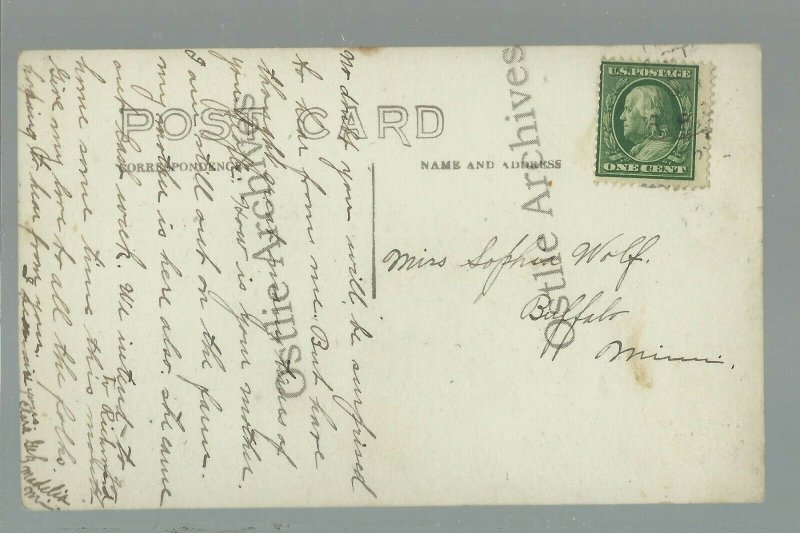 POST CARD
CORRESPONDENCE
NAME AND ADDRESS
U.S. POSTAGE
ONE CENT
Miss Sophia Wolf.
Buffalo
Minn.
No doubt you will be surprised
to hear from me. But have
thought great many times of
you folks. How is your mother.
I am still out on the farm.
my mother is here also. she came
out last week. We intend to go
to Richmond
home some time this month
Give my love to all the folks
hoping to hear from you.
Ostlie Archives
Ostlie Archives